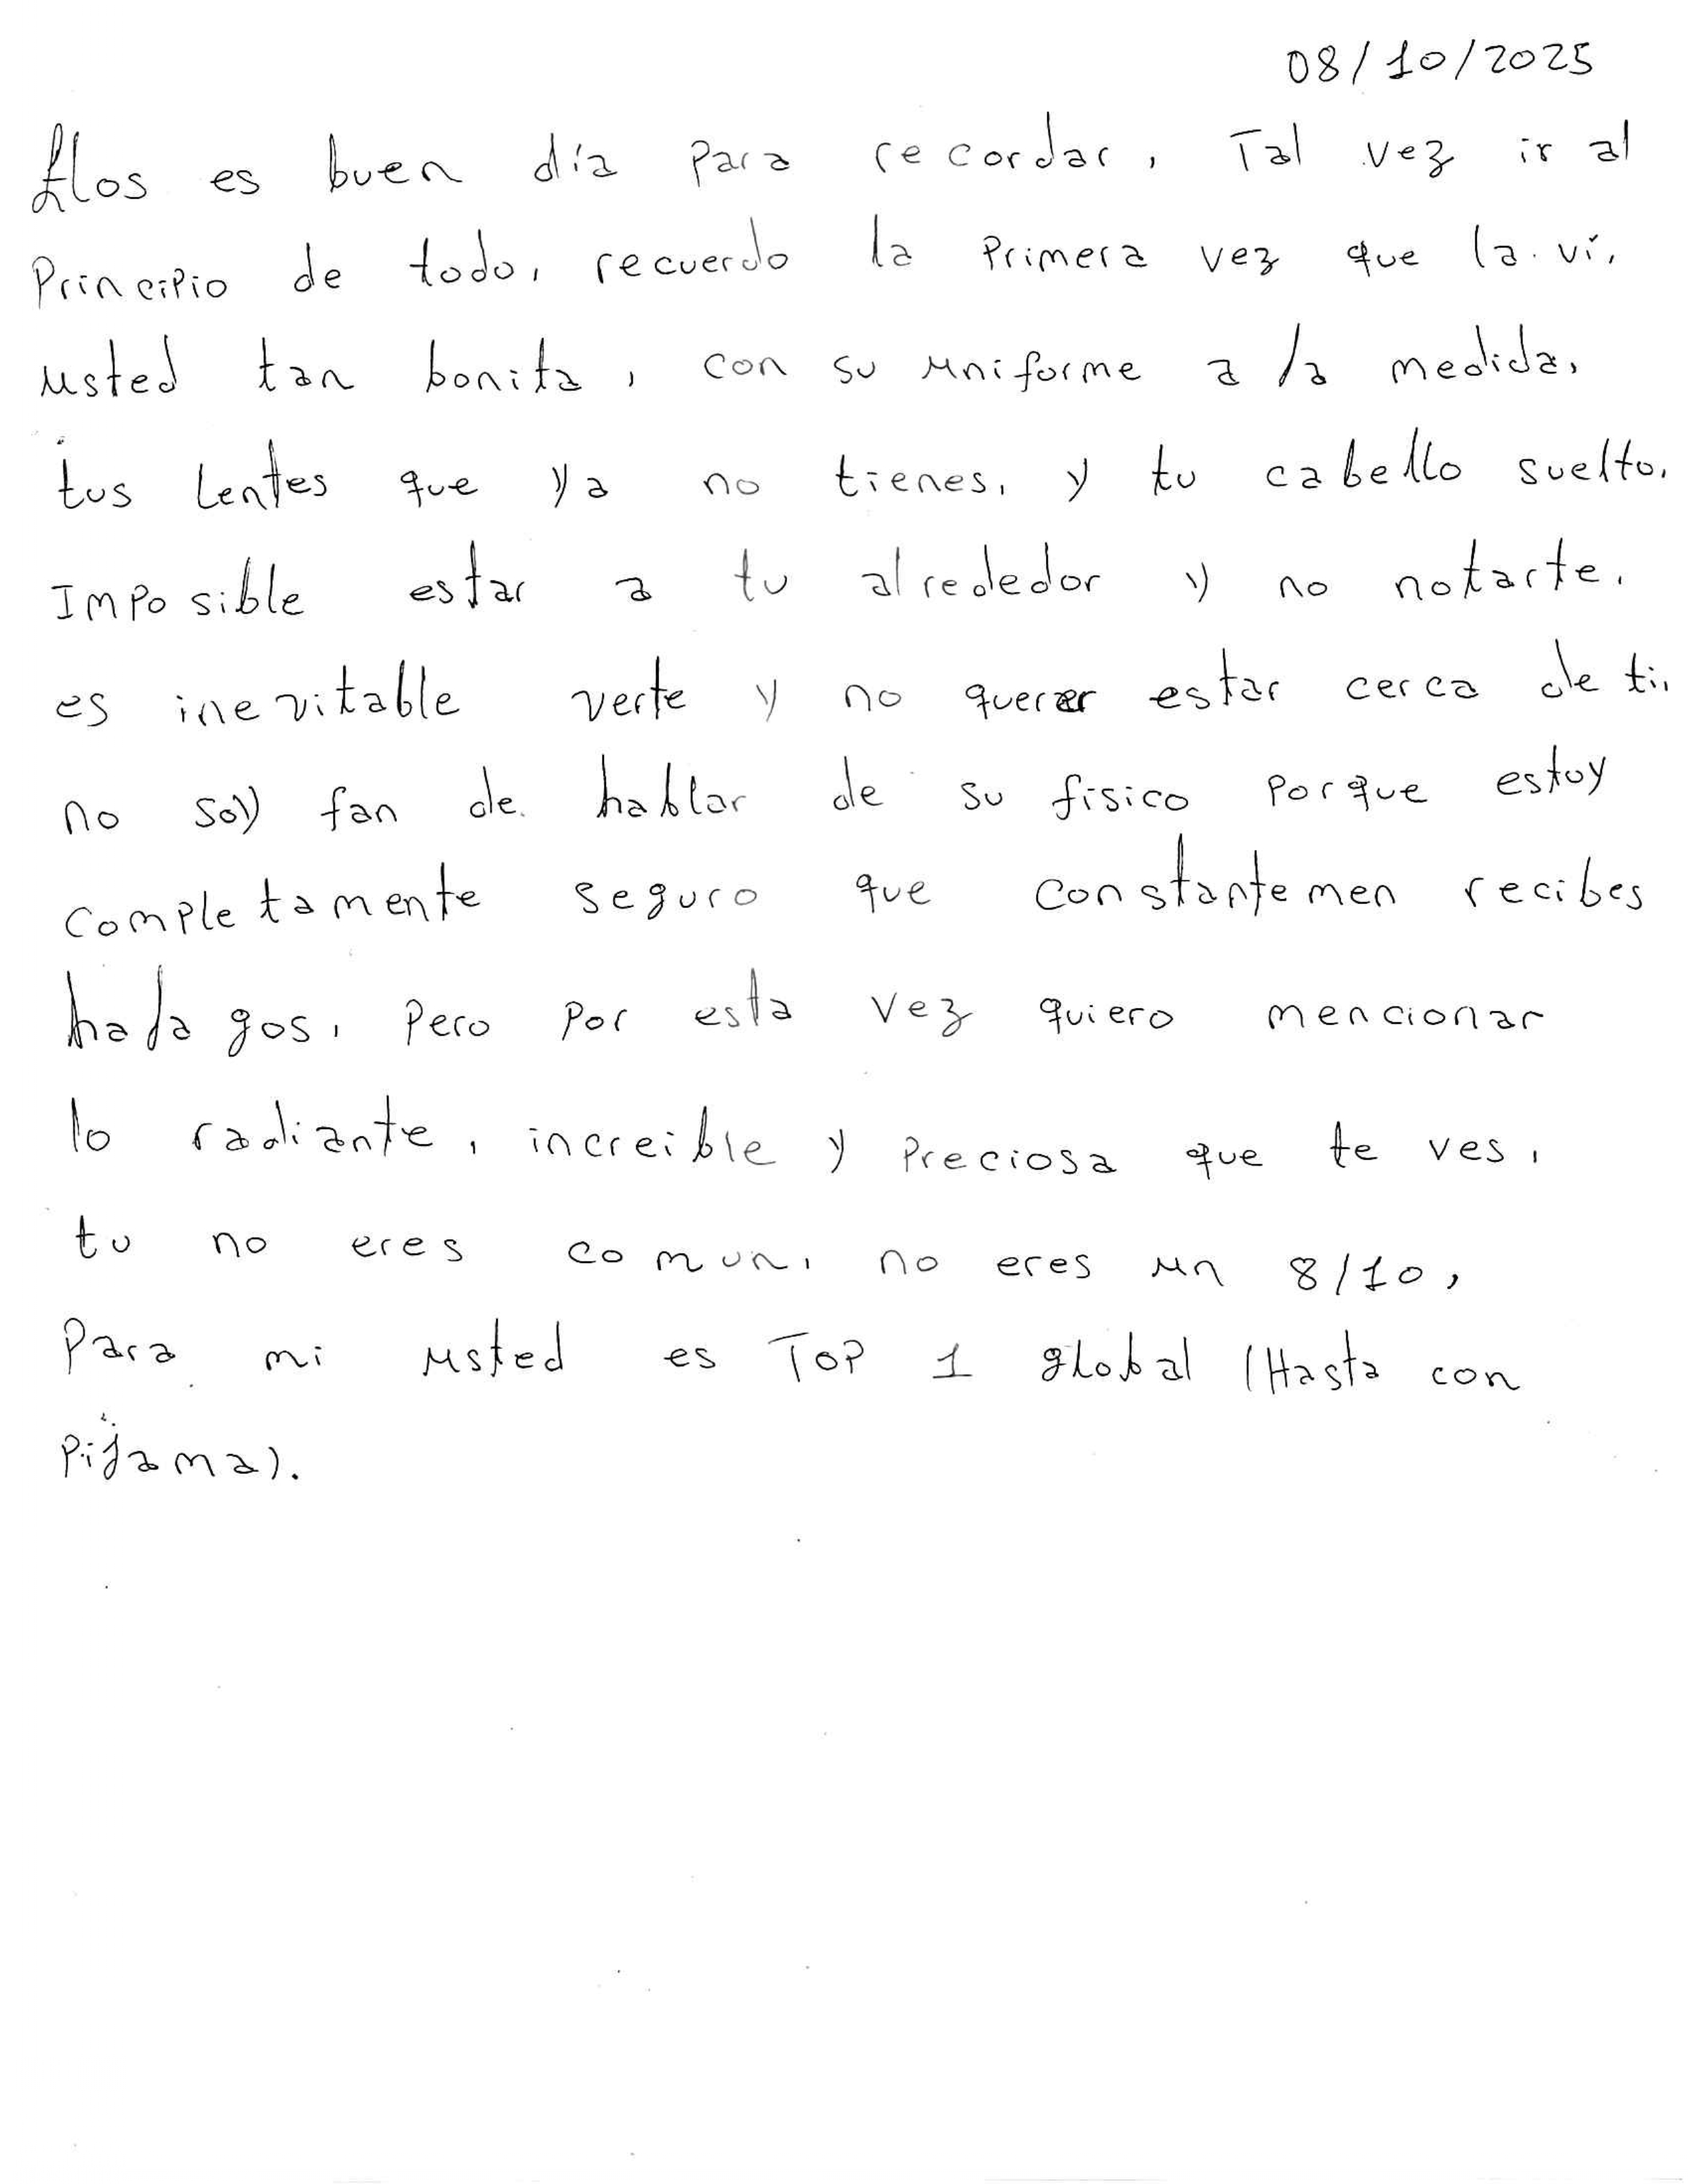 08/10/2025
es buen día para recordar, Tal vez ir al
Principio de todo, recuerdo la Primera vez que la ví,
usted tan bonita, con su uniforme a la medida,
tus lentes que ya no tienes, y tu cabello suelto,
Imposible estar a tu alrededor y no notarte,
es inevitable verte y no querer estar cerca de ti,
no soy fan de hablar de su fisico Porque estoy
completamente seguro que constantemen recibes
halagos, Pero Por esta vez quiero mencionar
lo radiante, increible y Preciosa que te ves,
tu no eres comun, no eres un 8/10,
Para mi usted es Top 1 global (Hasta con
Pijama).